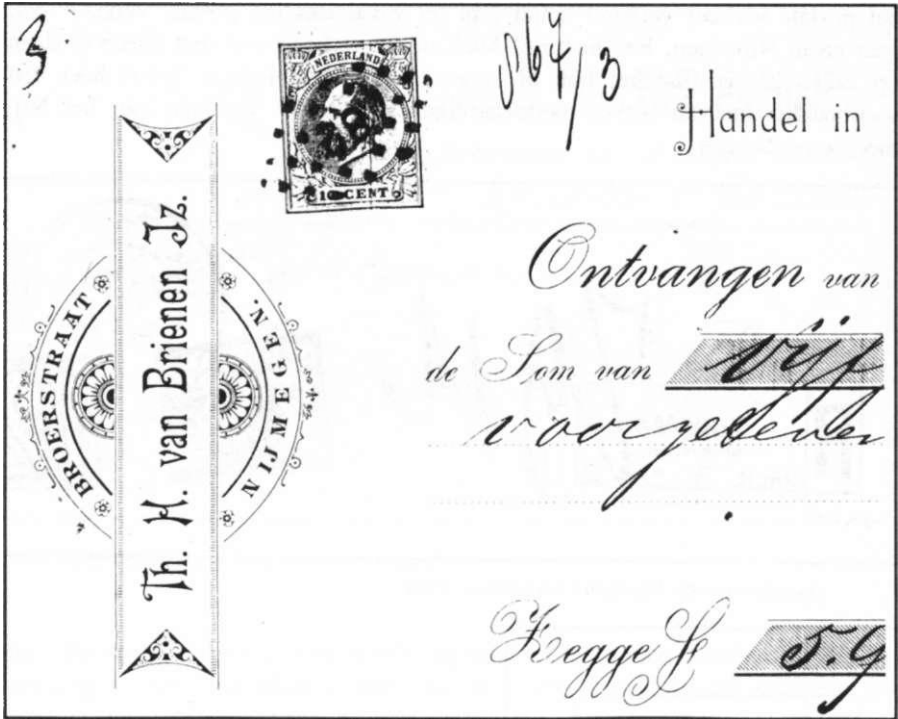 3
564/3
NEDERLAND
10 CENT
Handel in
BROERSTRAAT
Th. H. van Brienen Jz.
NIJMEGEN.
Ontvangen van
de Som van vijf
voor geleverde
Zegge f 5.9